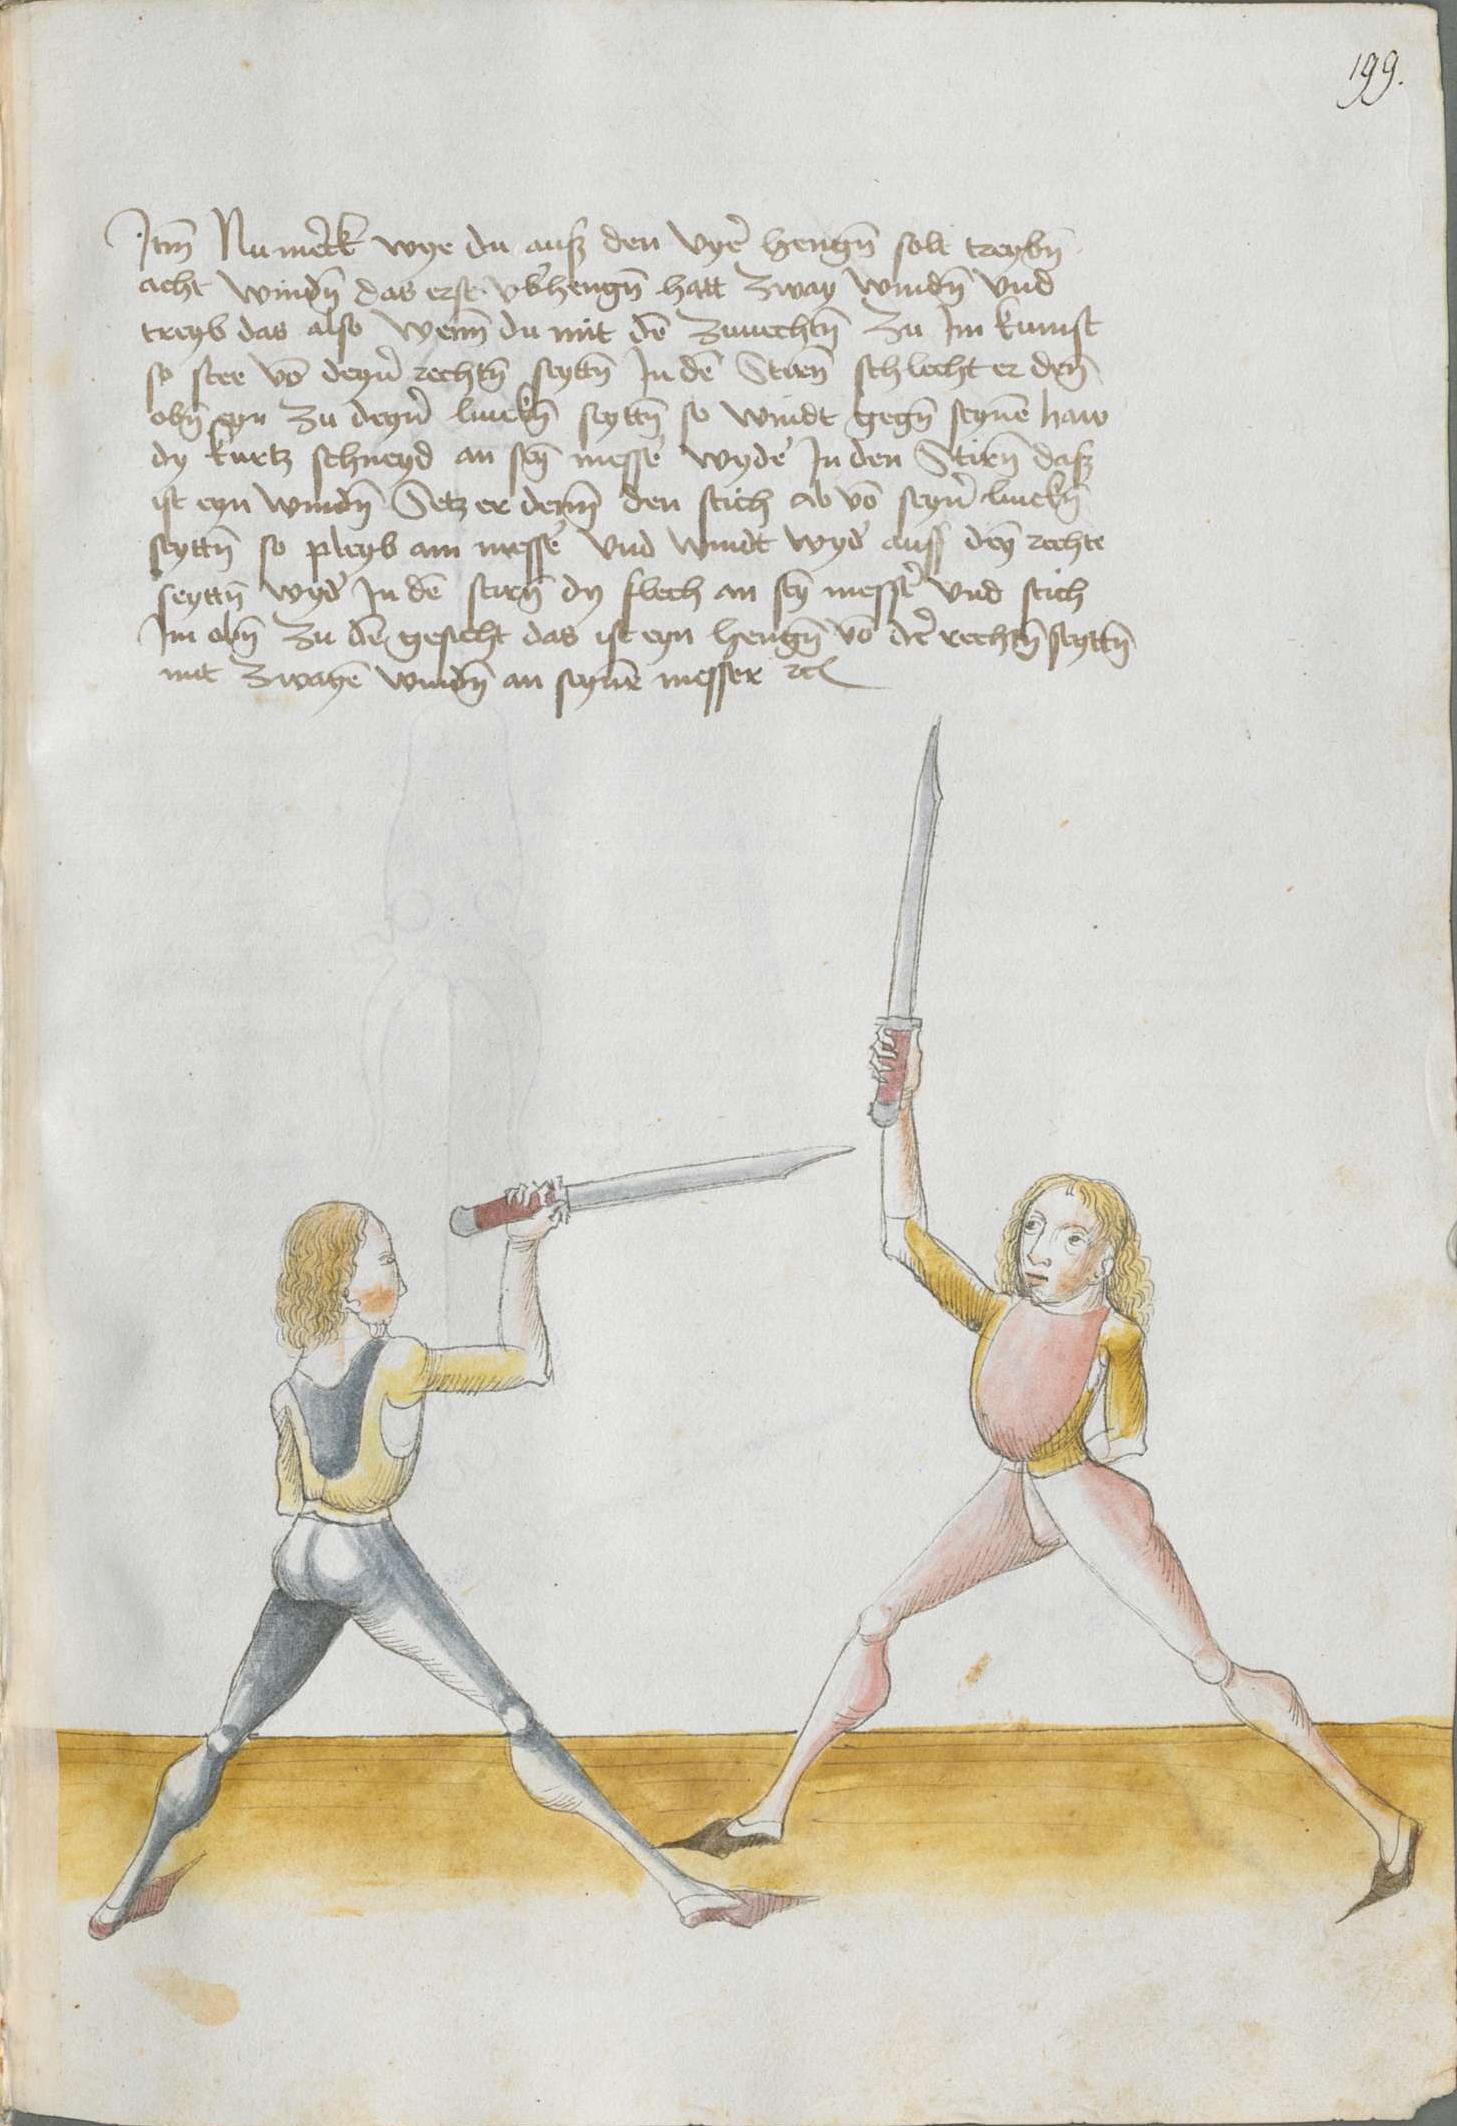 199.
Itm̄ Nu merck wye du auß den vyer hengn̄ solt treybn̄
acht windn̄ das erst vberhengn̄ hatt zway windn̄ vnd
treyb das also wenn du mit dē zuuechtn̄ zu Im kumst
so stee vō deynr̄ rechtn̄ seyttn̄ In dē Stirn̄ schlecht er den̄
obn̄ eyn zu deynr̄ linckn̄ seyttn̄ so windt gegn̄ seynē haw
dy kurtz schneyd an seyn̄ messer wyder In den Stirn̄ daß
ist eyn windn̄ Setz er denn den stich ab vō seynr̄ linckn̄
seyttn̄ so pleyb am messer vnd windt wyder auff deyn̄ rechte
seyttn̄ wyder In dē stirn̄ dy flech an seyn̄ messer vnd stich
Im obn̄ zu dē gesicht das ist eyn hengn̄ vō der rechtn̄ seyttn̄
mit zwayē windn̄ an seynē messer ꝛcͣ